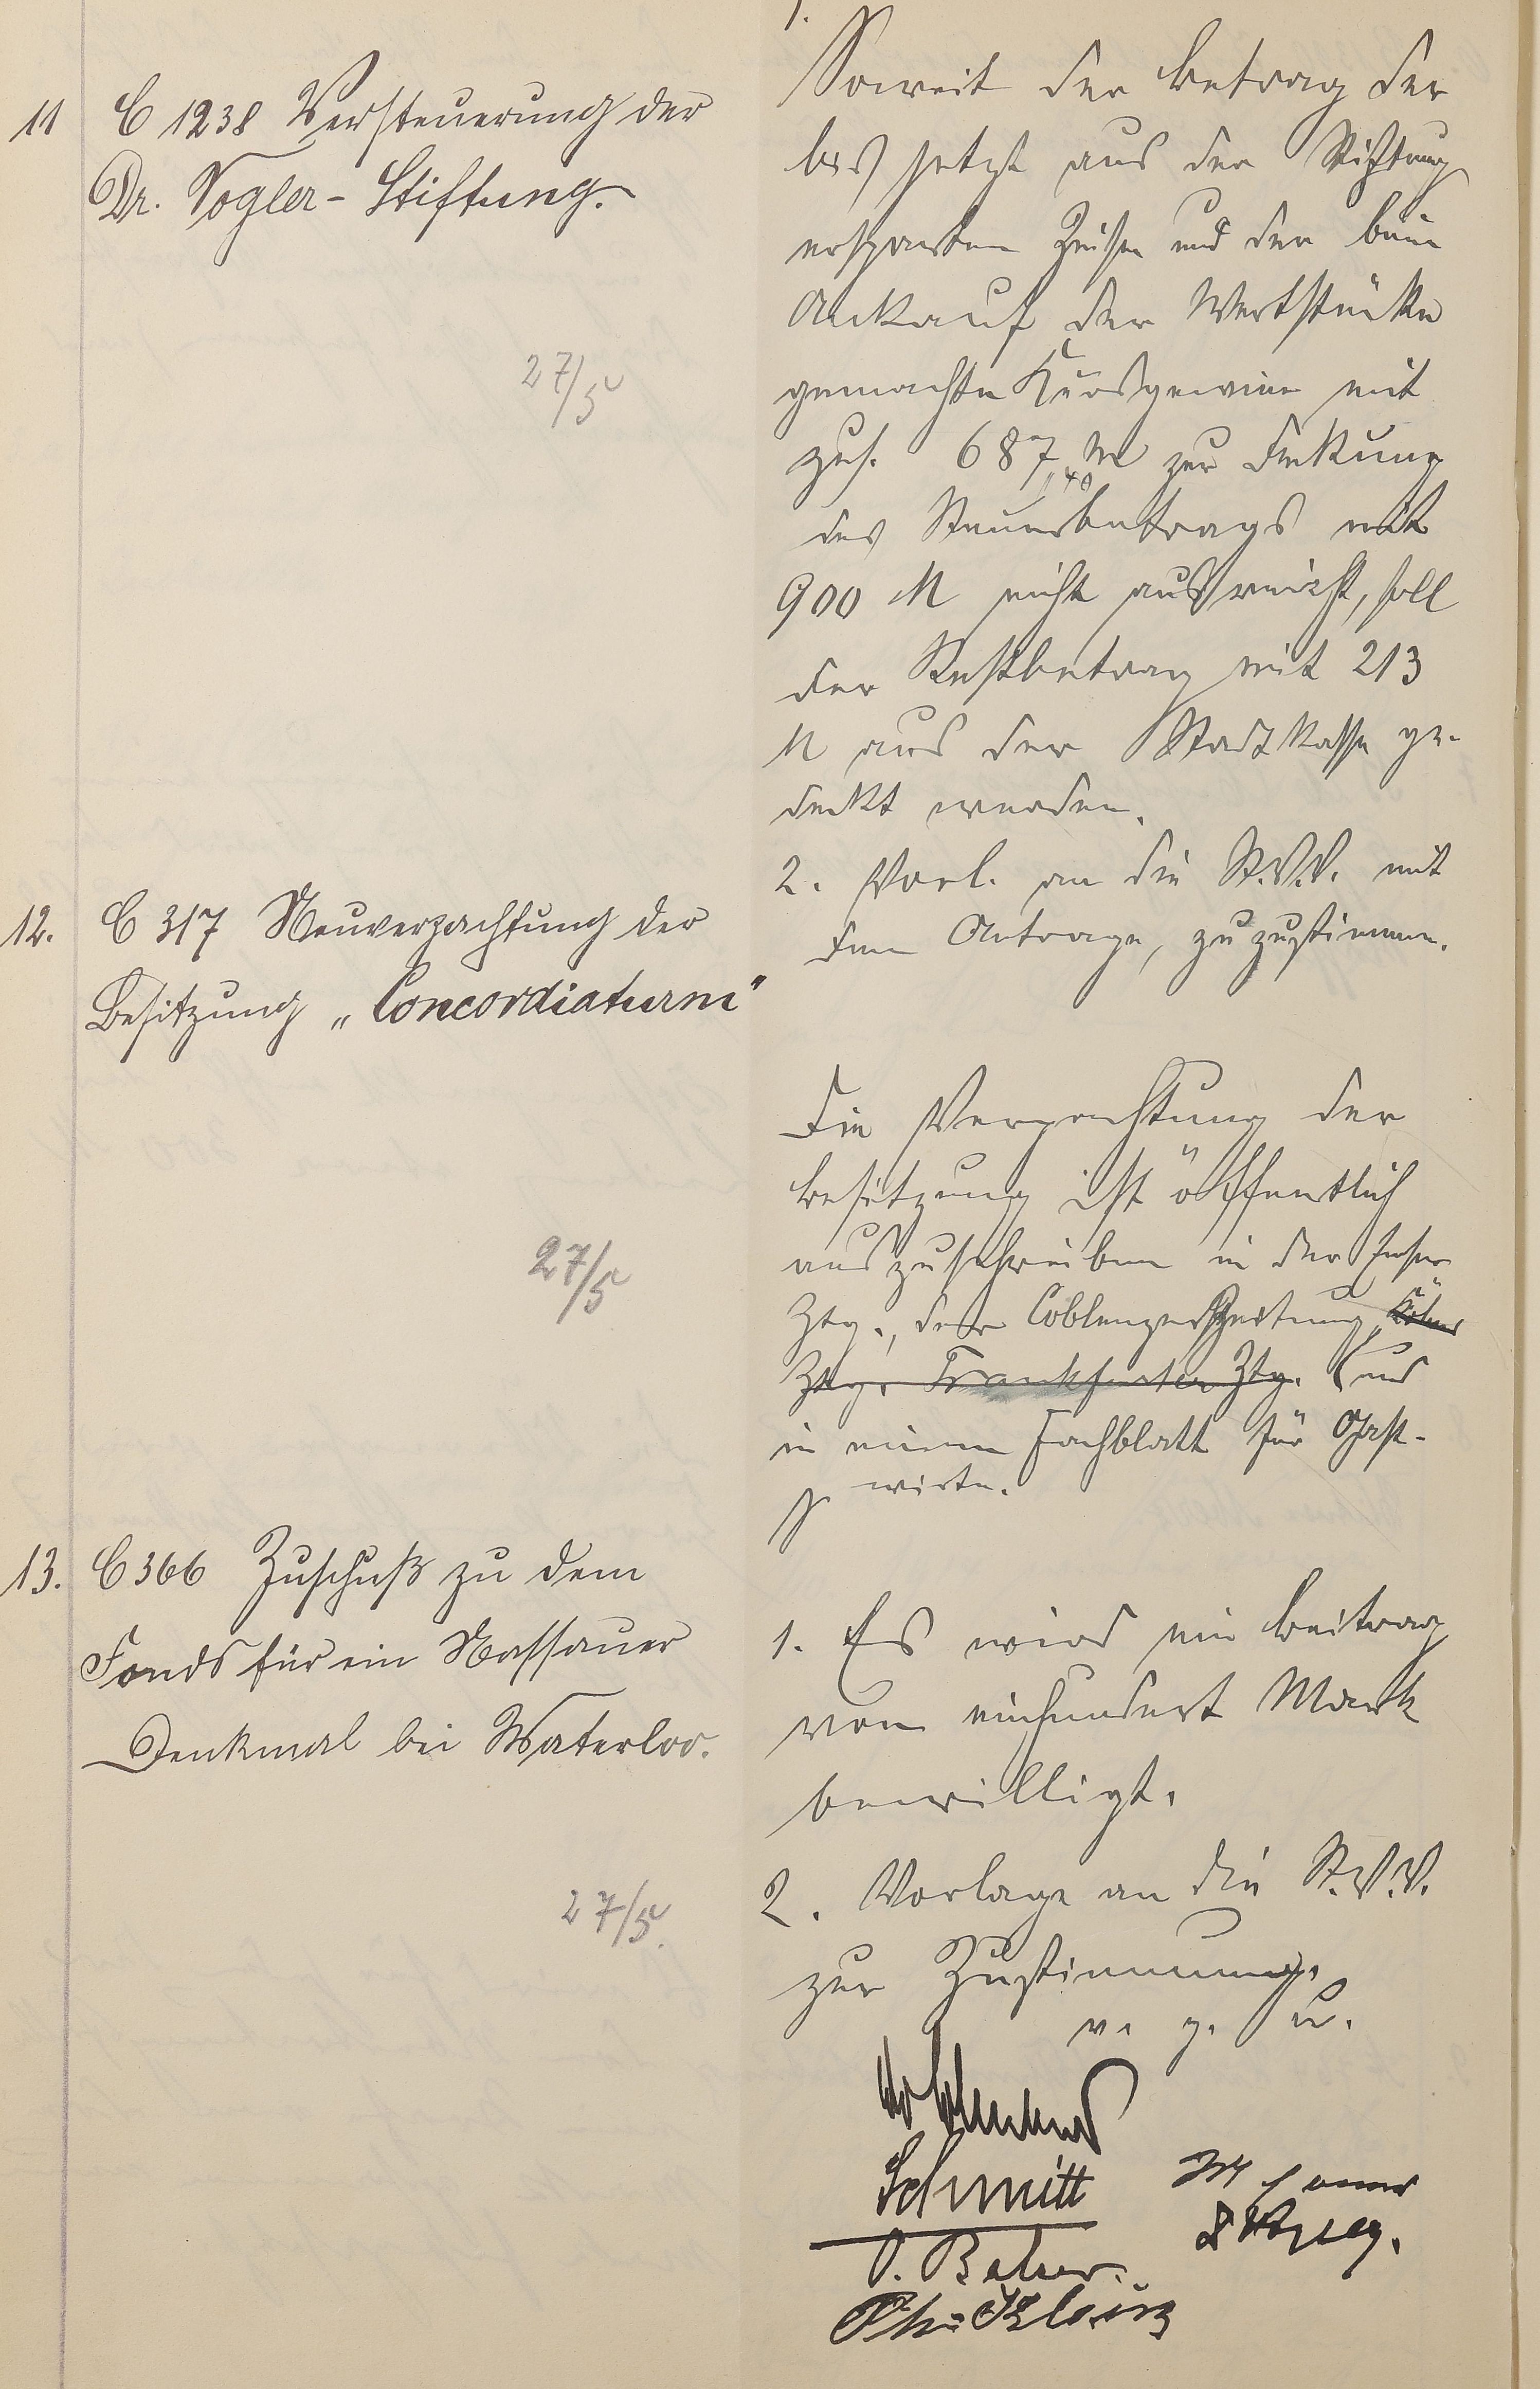 11 C 1238 Versteuerung der
Dr. Vogler-Stiftung.
27/5
1.
Soweit der Betrag der
bis jetzt aus der Stiftung
ersparten Zinsen und der beim
Ankauf der Wertstücke
gemachte Kursgewinn mit
zus. 687,40 M zur Deckung
des Steuerbetrags mit
900 M nicht ausreicht, soll
der Restbetrag mit 213
M aus der Stadtkasse ge-
deckt werden.
2. Vorl. an die St.V.V. mit
dem Antrage, zuzustimmen.
12. C 317 Neuverpachtung der
Besitzung „Concordiaturm"
27/5
Die Verpachtung der
Besitzung ist öffentlich
auszuschreiben in der Emser
Ztg., der Coblenzer Zeitung, Kölner
Ztg. Frankfurter Ztg. und
in einem Fachblatt für Gast-
wirte.
13. C 366 Zuschuß zu dem
Fonds für ein Nassauer
Denkmal bei Waterloo.
27/5.
1. Es wird ein Beitrag
von einhundert Mark
bewilligt.
2. Vorlage an die St.V.V.
zur Zustimmung.
v. g. u.
Schmitt